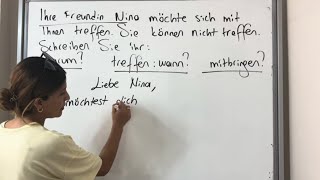 Ihre Freundin Nina möchte sich mit
Ihnen treffen. Sie können nicht treffen.
Schreiben Sie ihr:
rum? treffen: wann? mitbringen?
Liebe Nina,
möchtest dich